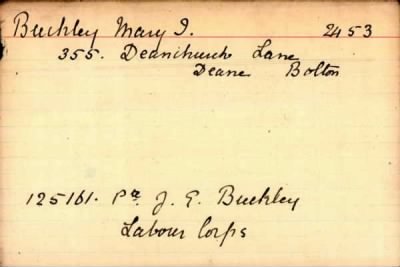 Buckley Mary I. 2453
355. Deanchurch Lane
Deane Bolton
125161. Pte J. E. Buckley
Labour Corps